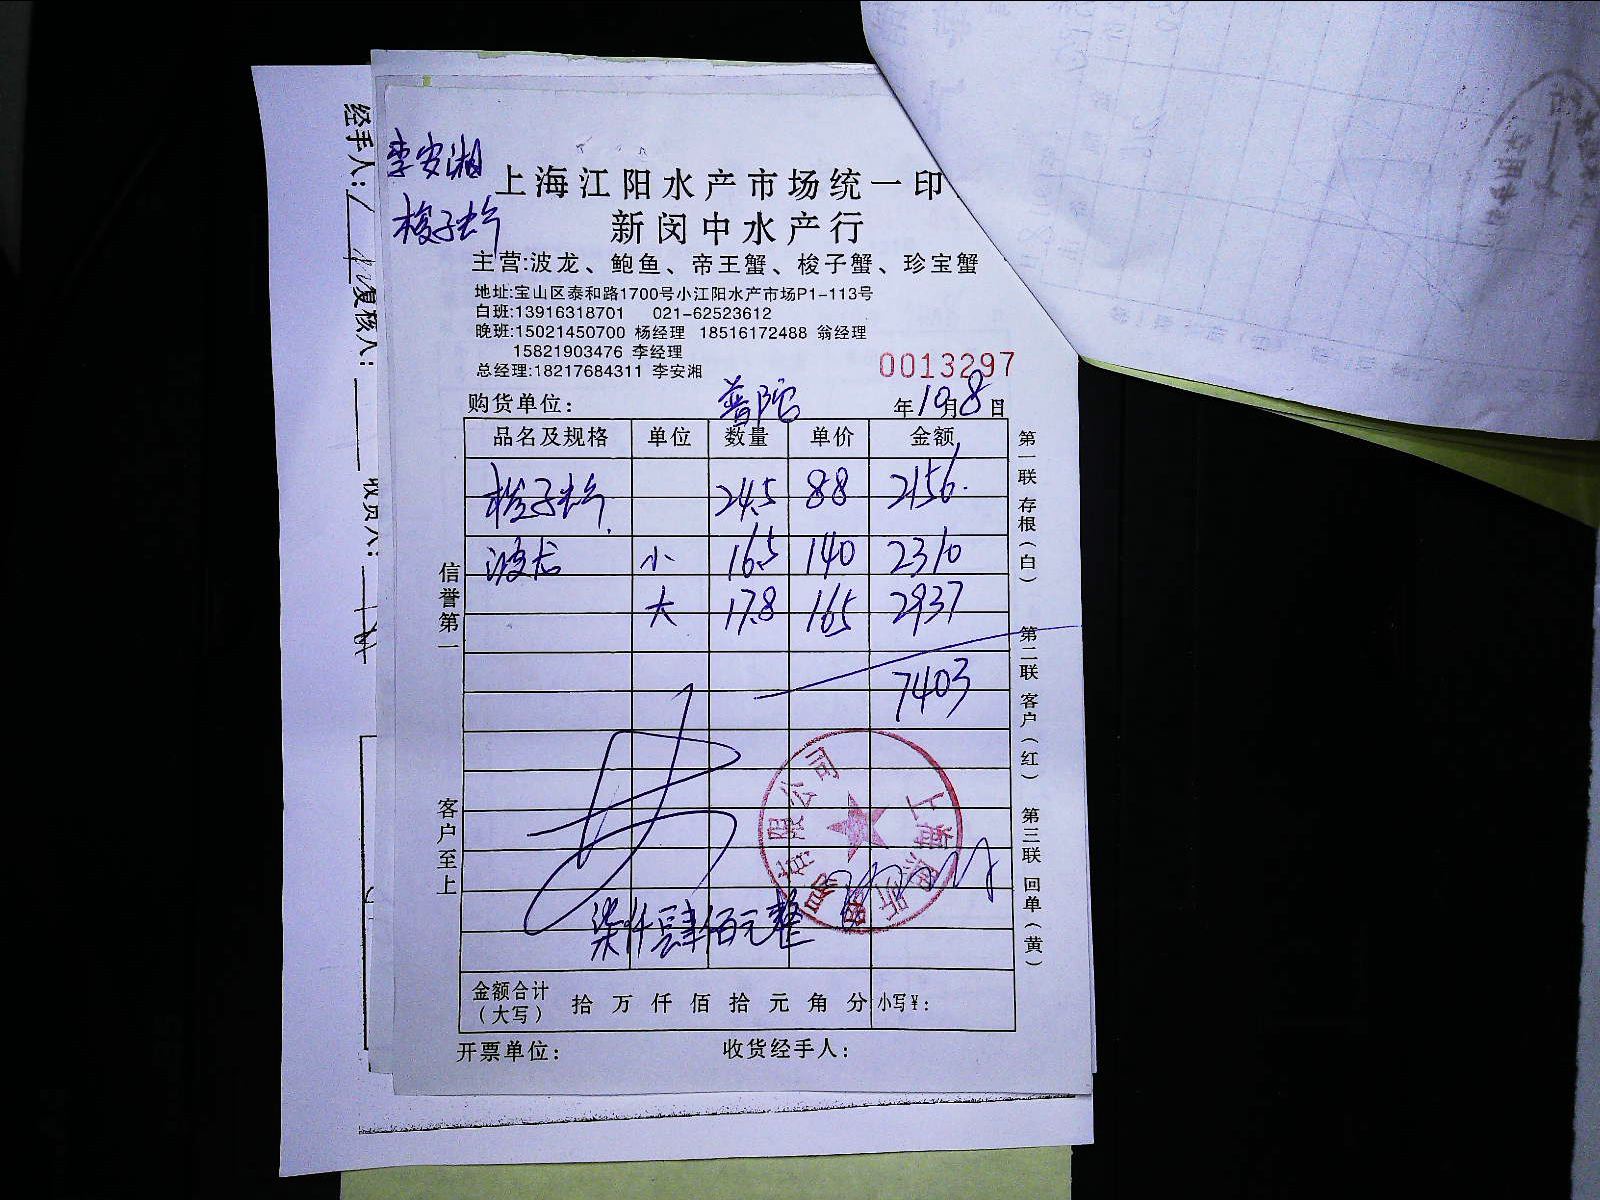 经手人:
复核人:
收货人:
李安湘
梭子蟹
上海江阳水产市场统一印
新闵中水产行
主营:波龙、鲍鱼、帝王蟹、梭子蟹、珍宝蟹
地址:宝山区泰和路1700号小江阳水产市场P1-113号
白班:13916318701 021-62523612
晚班:15021450700 杨经理 18516172488 翁经理
15821903476 李经理
总经理:18217684311 李安湘
0013297
购货单位: 普陀 年10月8日
品名及规格 单位 数量 单价 金额
梭子蟹 24.5 88 2156.
波龙 小 16.5 140 2310
大 17.8 165 2937
7403
柒仟肆佰元整
金额合计(大写) 拾 万 仟 佰 拾 元 角 分 小写¥:
开票单位: 收货经手人:
信誉第一
客户至上
第一联 存根(白)
第二联 客户(红)
第三联 回单(黄)
上海
有限公司